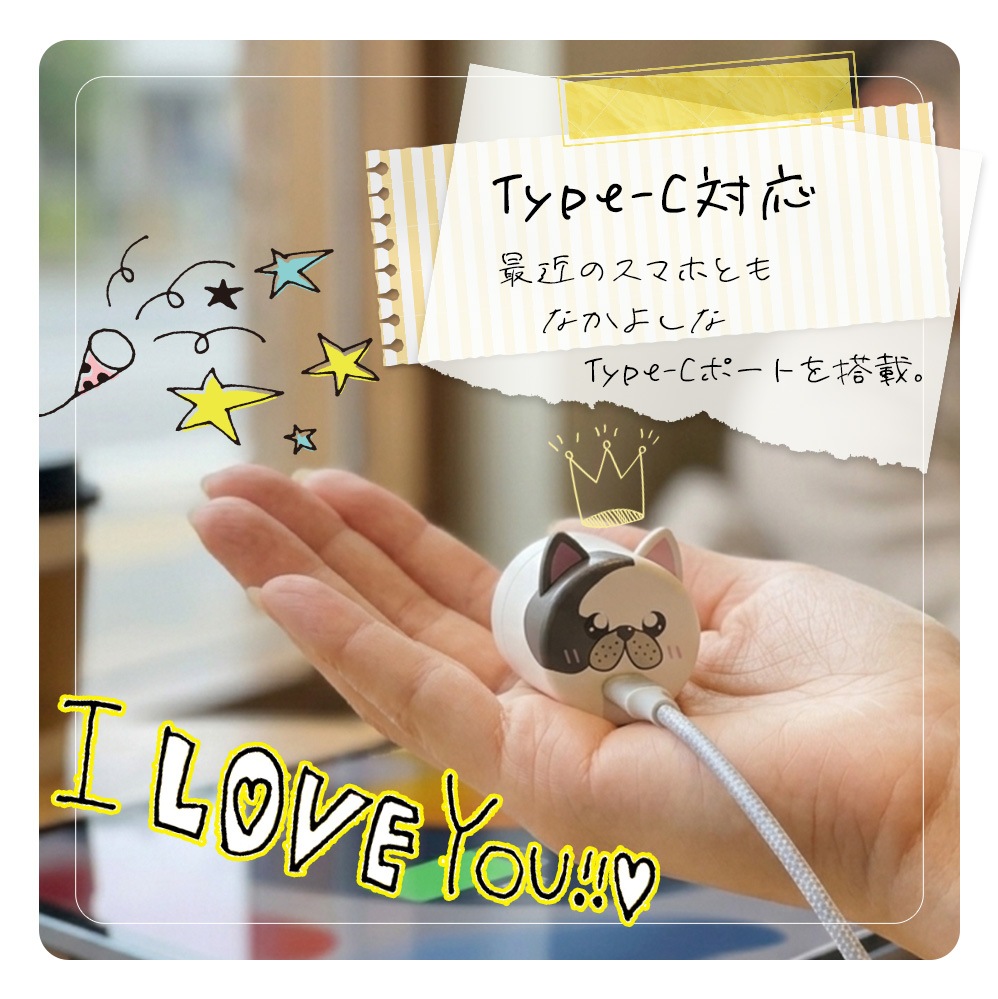 Type-C対応
最近のスマホとも
なかよしな
Type-Cポートを搭載。
I LOVE YOU!!♡